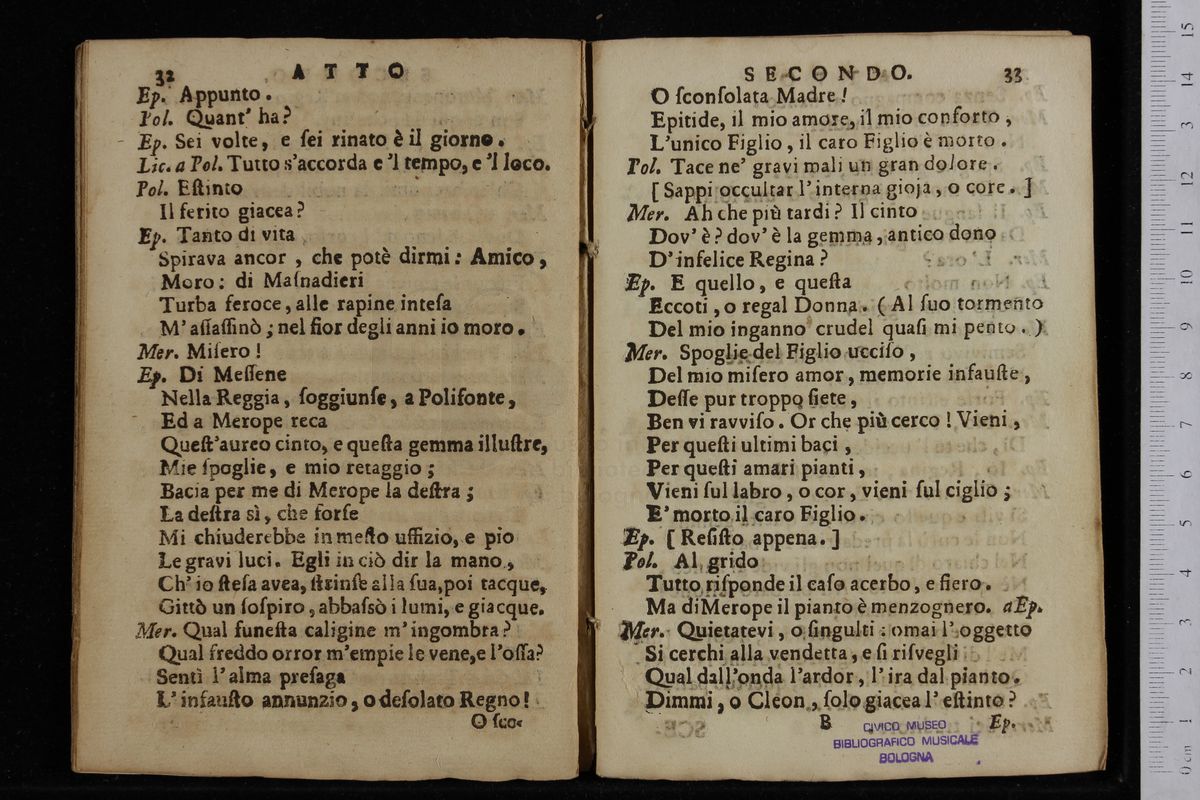 32 ATTO
Ep. Appunto.
Pol. Quant' ha?
Ep. Sei volte, e ſei rinato è il giorno.
Lic. a Pol. Tutto s'accorda e 'l tempo, e 'l loco.
Pol. Eſtinto
Il ferito giacea?
Ep. Tanto di vita
Spirava ancor, che potè dirmi: Amico,
Moro: di Maſnadieri
Turba feroce, alle rapine inteſa
M' aſſaſſinò; nel fior degli anni io moro.
Mer. Miſero!
Ep. Di Meſſene
Nella Reggia, ſoggiunſe, a Polifonte,
Ed a Merope reca
Queſt'aureo cinto, e queſta gemma illuſtre,
Mie ſpoglie, e mio retaggio;
Bacia per me di Merope la deſtra;
La deſtra sì, che forſe
Mi chiuderebbe in meſto uffizio, e pio
Le gravi luci. Egli in ciò dir la mano,
Ch' io ſteſa avea, ſtrinſe alla ſua, poi tacque,
Gittò un ſoſpiro, abbaſsò i lumi, e giacque.
Mer. Qual funeſta caligine m' ingombra?
Qual freddo orror m'empie le vene, e l'oſſa?
Sentì l' alma preſaga
L' infauſto annunzio, o deſolato Regno!
O ſco-
SECONDO. 33
O ſconſolata Madre!
Epitide, il mio amore, il mio conforto,
L'unico Figlio, il caro Figlio è morto.
Pol. Tace ne' gravi mali un gran dolore.
[Sappi occultar l' interna gioja, o core.]
Mer. Ah che più tardi? Il cinto
Dov' è? dov' è la gemma, antico dono
D' infelice Regina?
Ep. E quello, e queſta
Eccoti, o regal Donna. (Al ſuo tormento
Del mio inganno crudel quaſi mi pento.)
Mer. Spoglie del Figlio ucciſo,
Del mio miſero amor, memorie infauſte,
Deſſe pur troppo ſiete,
Ben vi ravviſo. Or che più cerco! Vieni,
Per queſti ultimi baci,
Per queſti amari pianti,
Vieni ſul labro, o cor, vieni ſul ciglio;
E' morto il caro Figlio.
Ep. [Reſiſto appena.]
Pol. Al grido
Tutto riſponde il caſo acerbo, e fiero.
Ma di Merope il pianto è menzognero. a Ep.
Mer. Quietatevi, o ſingulti: omai l' oggetto
Si cerchi alla vendetta, e ſi riſvegli
Qual dall'onda l'ardor, l' ira dal pianto.
Dimmi, o Cleon, ſolo giacea l' eſtinto?
B Ep.
CIVICO MUSEO
BIBLIOGRAFICO MUSICALE
BOLOGNA
0 cm 1 2 3 4 5 6 7 8 9 10 11 12 13 14 15